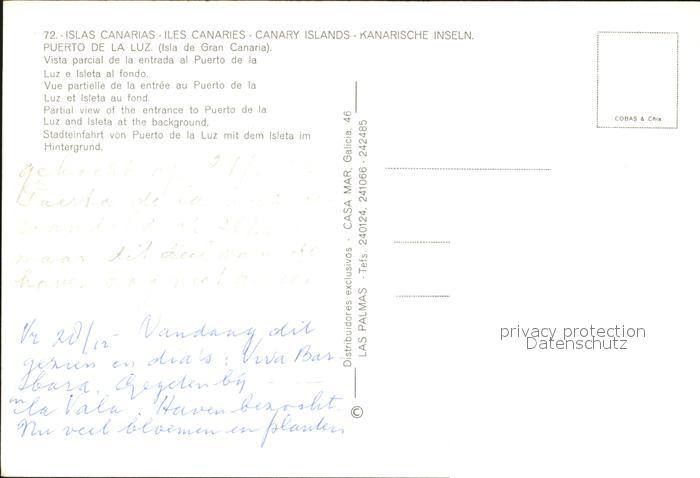 72.-ISLAS CANARIAS - ILES CANARIES - CANARY ISLANDS - KANARISCHE INSELN.
PUERTO DE LA LUZ. (Isla de Gran Canaria).
Vista parcial de la entrada al Puerto de la
Luz e Isleta al fondo.
Vue partielle de la entrée au Puerto de la
Luz et Isleta au fond.
Partial view of the entrance to Puerto de la
Luz and Isleta at the background.
Stadteinfahrt von Puerto de la Luz mit dem Isleta im
Hintergrund.
de la
maar dit deel van de
haven nog niet
Vr 28/12 - Vandaag dit
gezien en dia's: Viva Bar
bara. Gegeten bij
la Vala. Haven bezocht.
Nu veel bloemen en planten
Distribuidores exclusivos - CASA MAR, Galicia, 46
LAS PALMAS - Tefs. 240124, 241066 - 242485
©
COBAS & Chia
privacy protection
Datenschutz